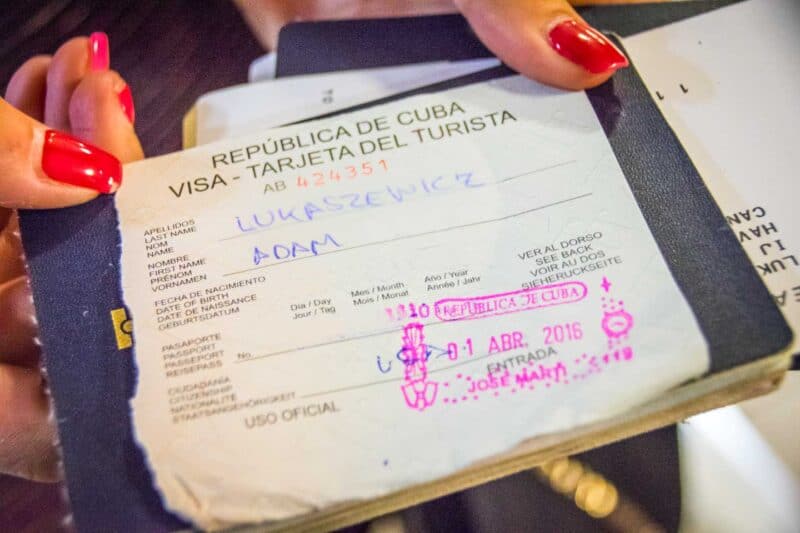 REPÚBLICA DE CUBA
VISA - TARJETA DEL TURISTA
AB 424351
APELLIDOS
LAST NAME
NOM
NAME
LUKASZEWICZ
NOMBRE
FIRST NAME
PRÉNOM
VORNAMEN
ADAM
FECHA DE NACIMIENTO
DATE OF BIRTH
DATE DE NAISSANCE
GEBURTSDATUM
Dia / Day
Jour / Tag
Mes / Month
Mois / Monat
Año / Year
Année / Jahr
VER AL DORSO
SEE BACK
VOIR AU DOS
SIEHERUCKSEITE
PASAPORTE
PASSPORT
PASSEPORT
REISEPASS
No.
REPÚBLICA DE CUBA
01 ABR. 2016
ENTRADA
JOSE MARTI
CIUDADANIA
CITIZENSHIP
NATIONALITE
STAATSANGEHÖRIGKEIT
USO OFICIAL